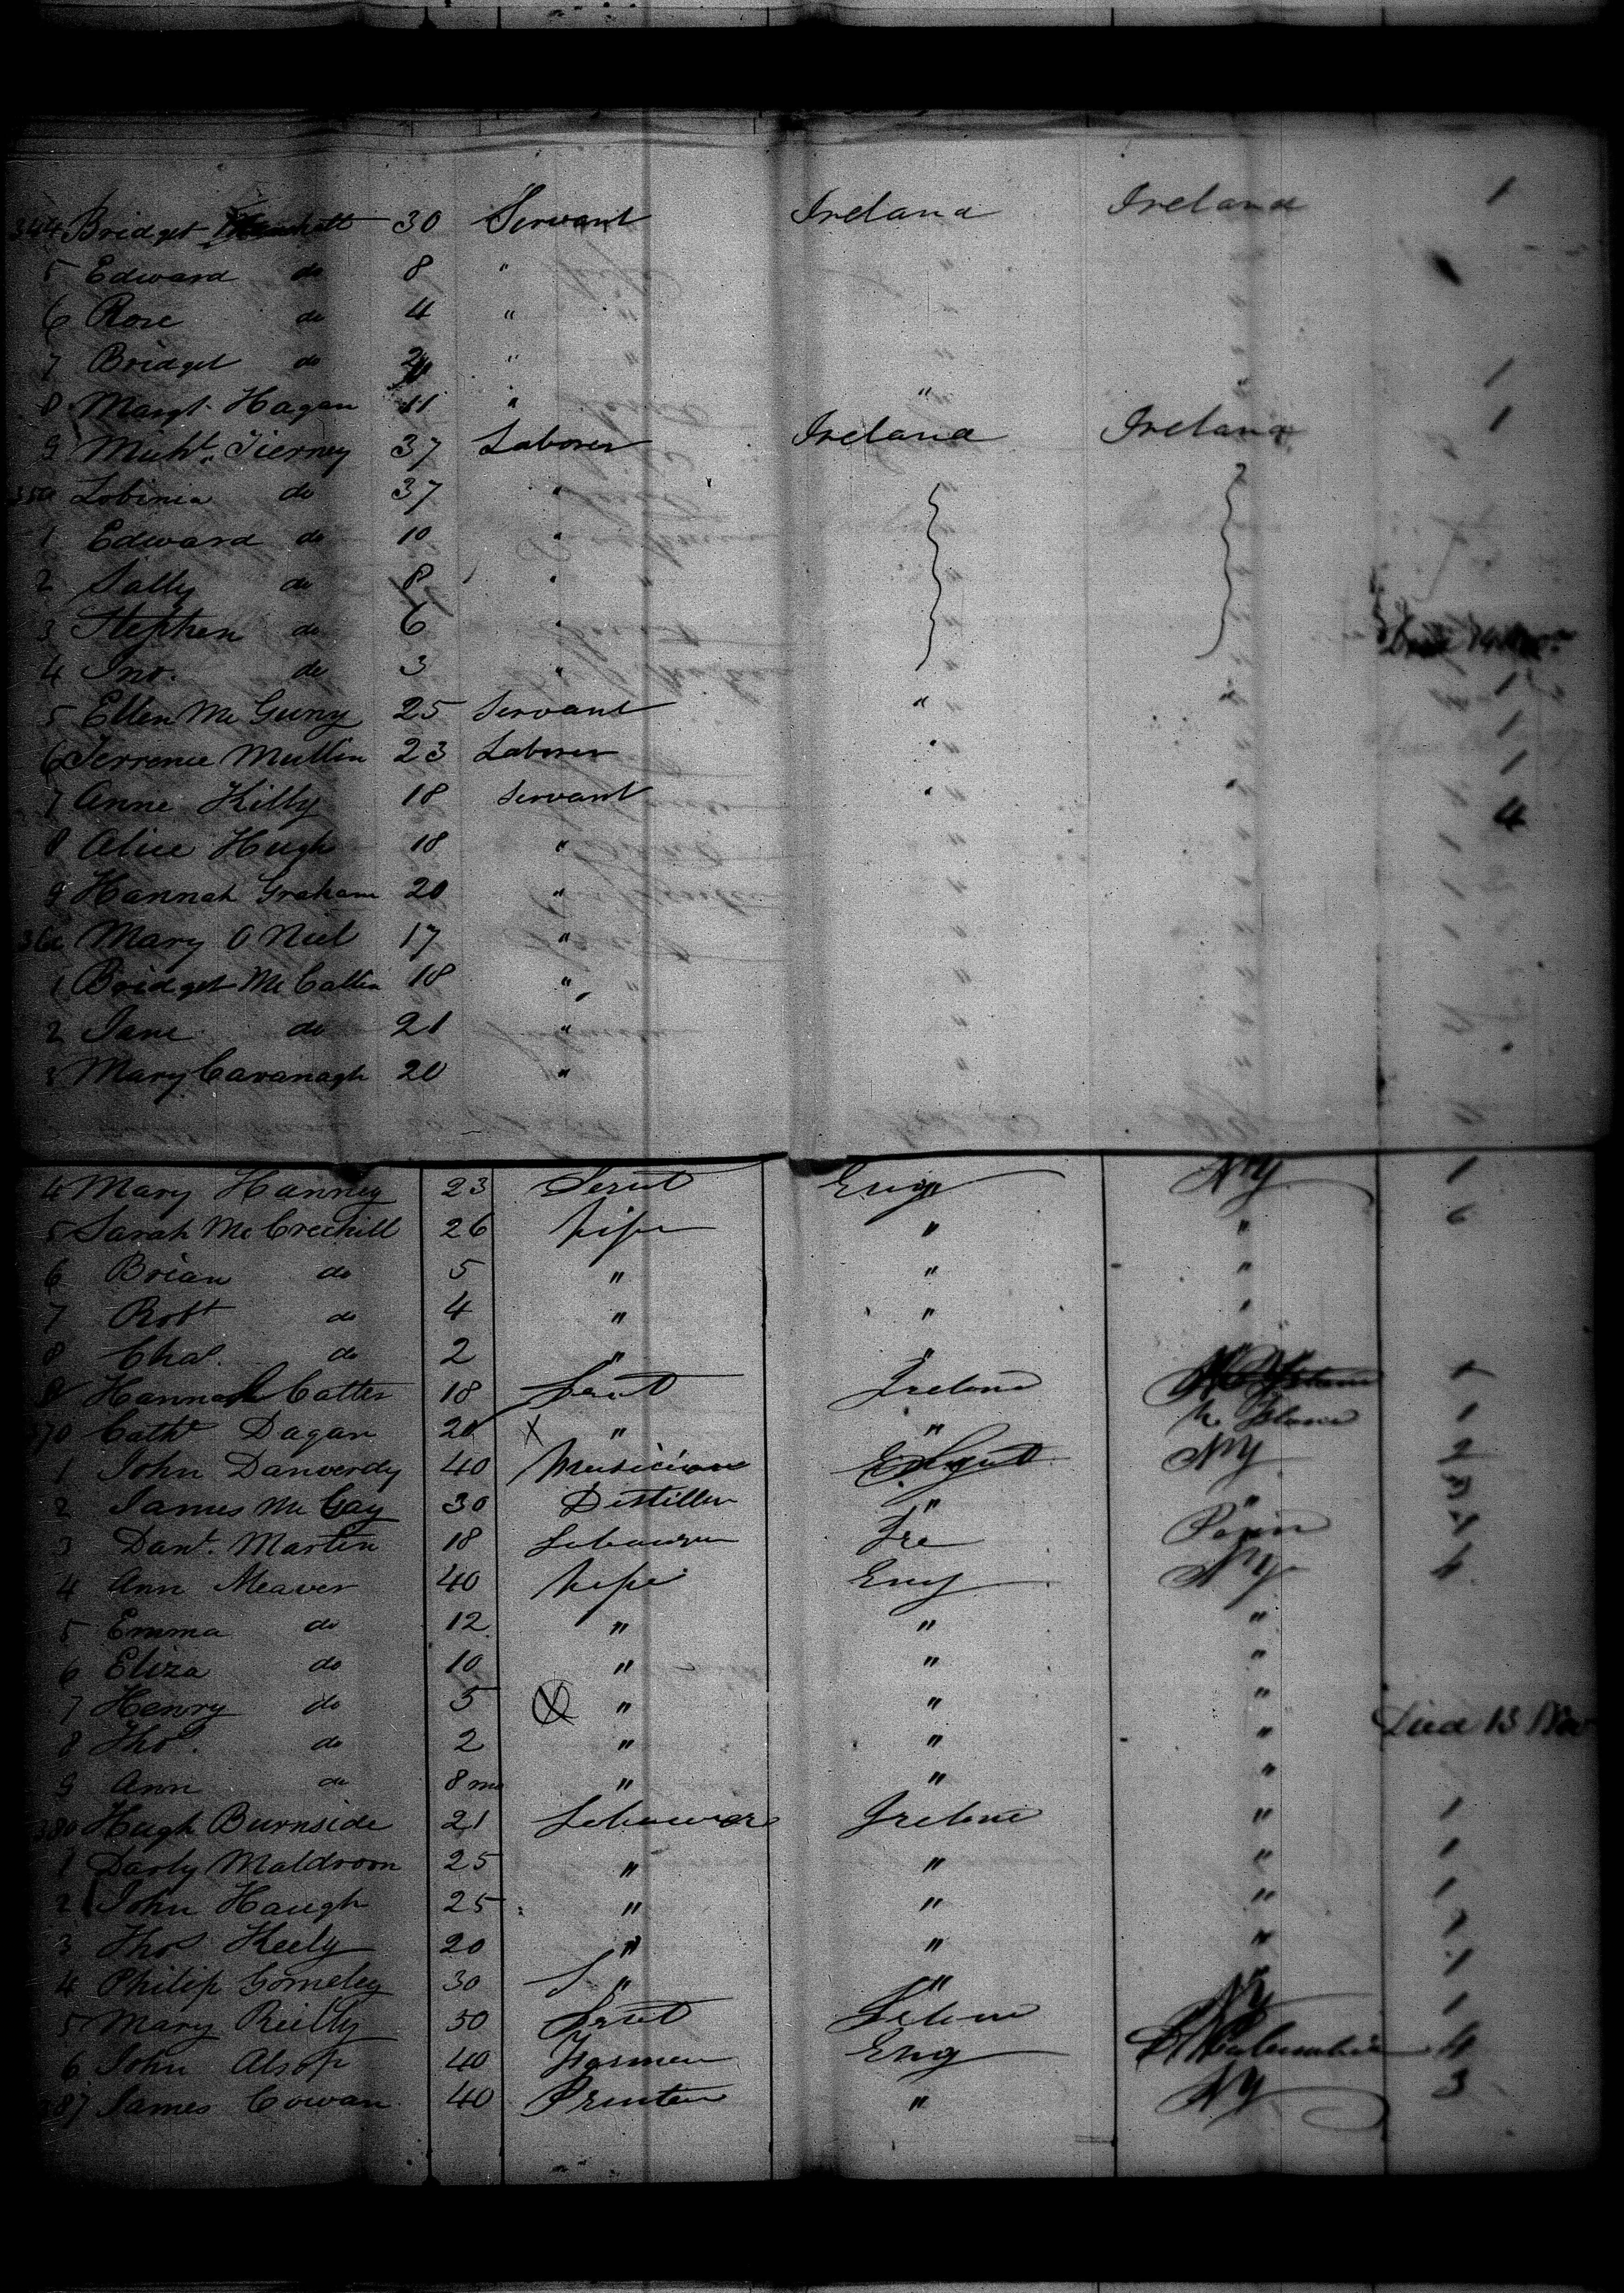 344 Bridget 30 Servant Ireland Ireland 1
5 Edward do 8 "
6 Rose do 4 "
7 Bridget do "
8 Margt. Hagan 11 " " " 1
9 Michl. Tierney 37 Laborer Ireland Ireland 1
350 Lobinia do 37 "
1 Edward do 10 "
2 Sally do 8 "
3 Stephen do 6 "
4 Jno. do 3 "
5 Ellen Mc Guny 25 Servant " " 1
6 Terrence Mullin 23 Laborer " " 1
7 Anne Kilty 18 Servant " " 1
8 Alice Hugh 18 " 4
9 Hannah Graham 20 "
360 Mary O Niel 17 "
1 Bridget Mc Callin 18 "
2 Jane do 21 "
3 Mary Cavanagh 20 "
4 Mary Hanney 23 Servt Eng NY 1
5 Sarah Mc Crechill 26 Wife " " 6
6 Brian do 5 " " "
7 Robt do 4 " " "
8 Chas. do 2 " " "
9 Hannah Catter 18 Servt Ireland 1
370 Cathe Dagan 20 X " " 1
1 John Danverdy 40 Musician NY 2
2 James Mc Gay 30 Distiller " "
3 Danl. Martin 18 Labourer Ire Penn 1
4 Ann Meaver 40 Wife Eng NY
5 Emma do 12 " " "
6 Eliza do 10 " " "
7 Henry do 5 X " " "
8 Thos. do 2 " " " Died 13 Nov
9 Ann do 8 mo " " "
380 Hugh Burnside 21 Labourer Ireland " 1
1 Darby Maldroon 25 " " " 1
2 John Haugh 25 " " " 1
3 Thos Keely 20 " " " 1
4 Philip Gomeley 30 " " " 1
5 Mary Reilly 50 Servt Ireland NY 1
6 John Alsop 40 Farmer Eng Columbia 4
387 James Cowan 40 Printer " NY 3